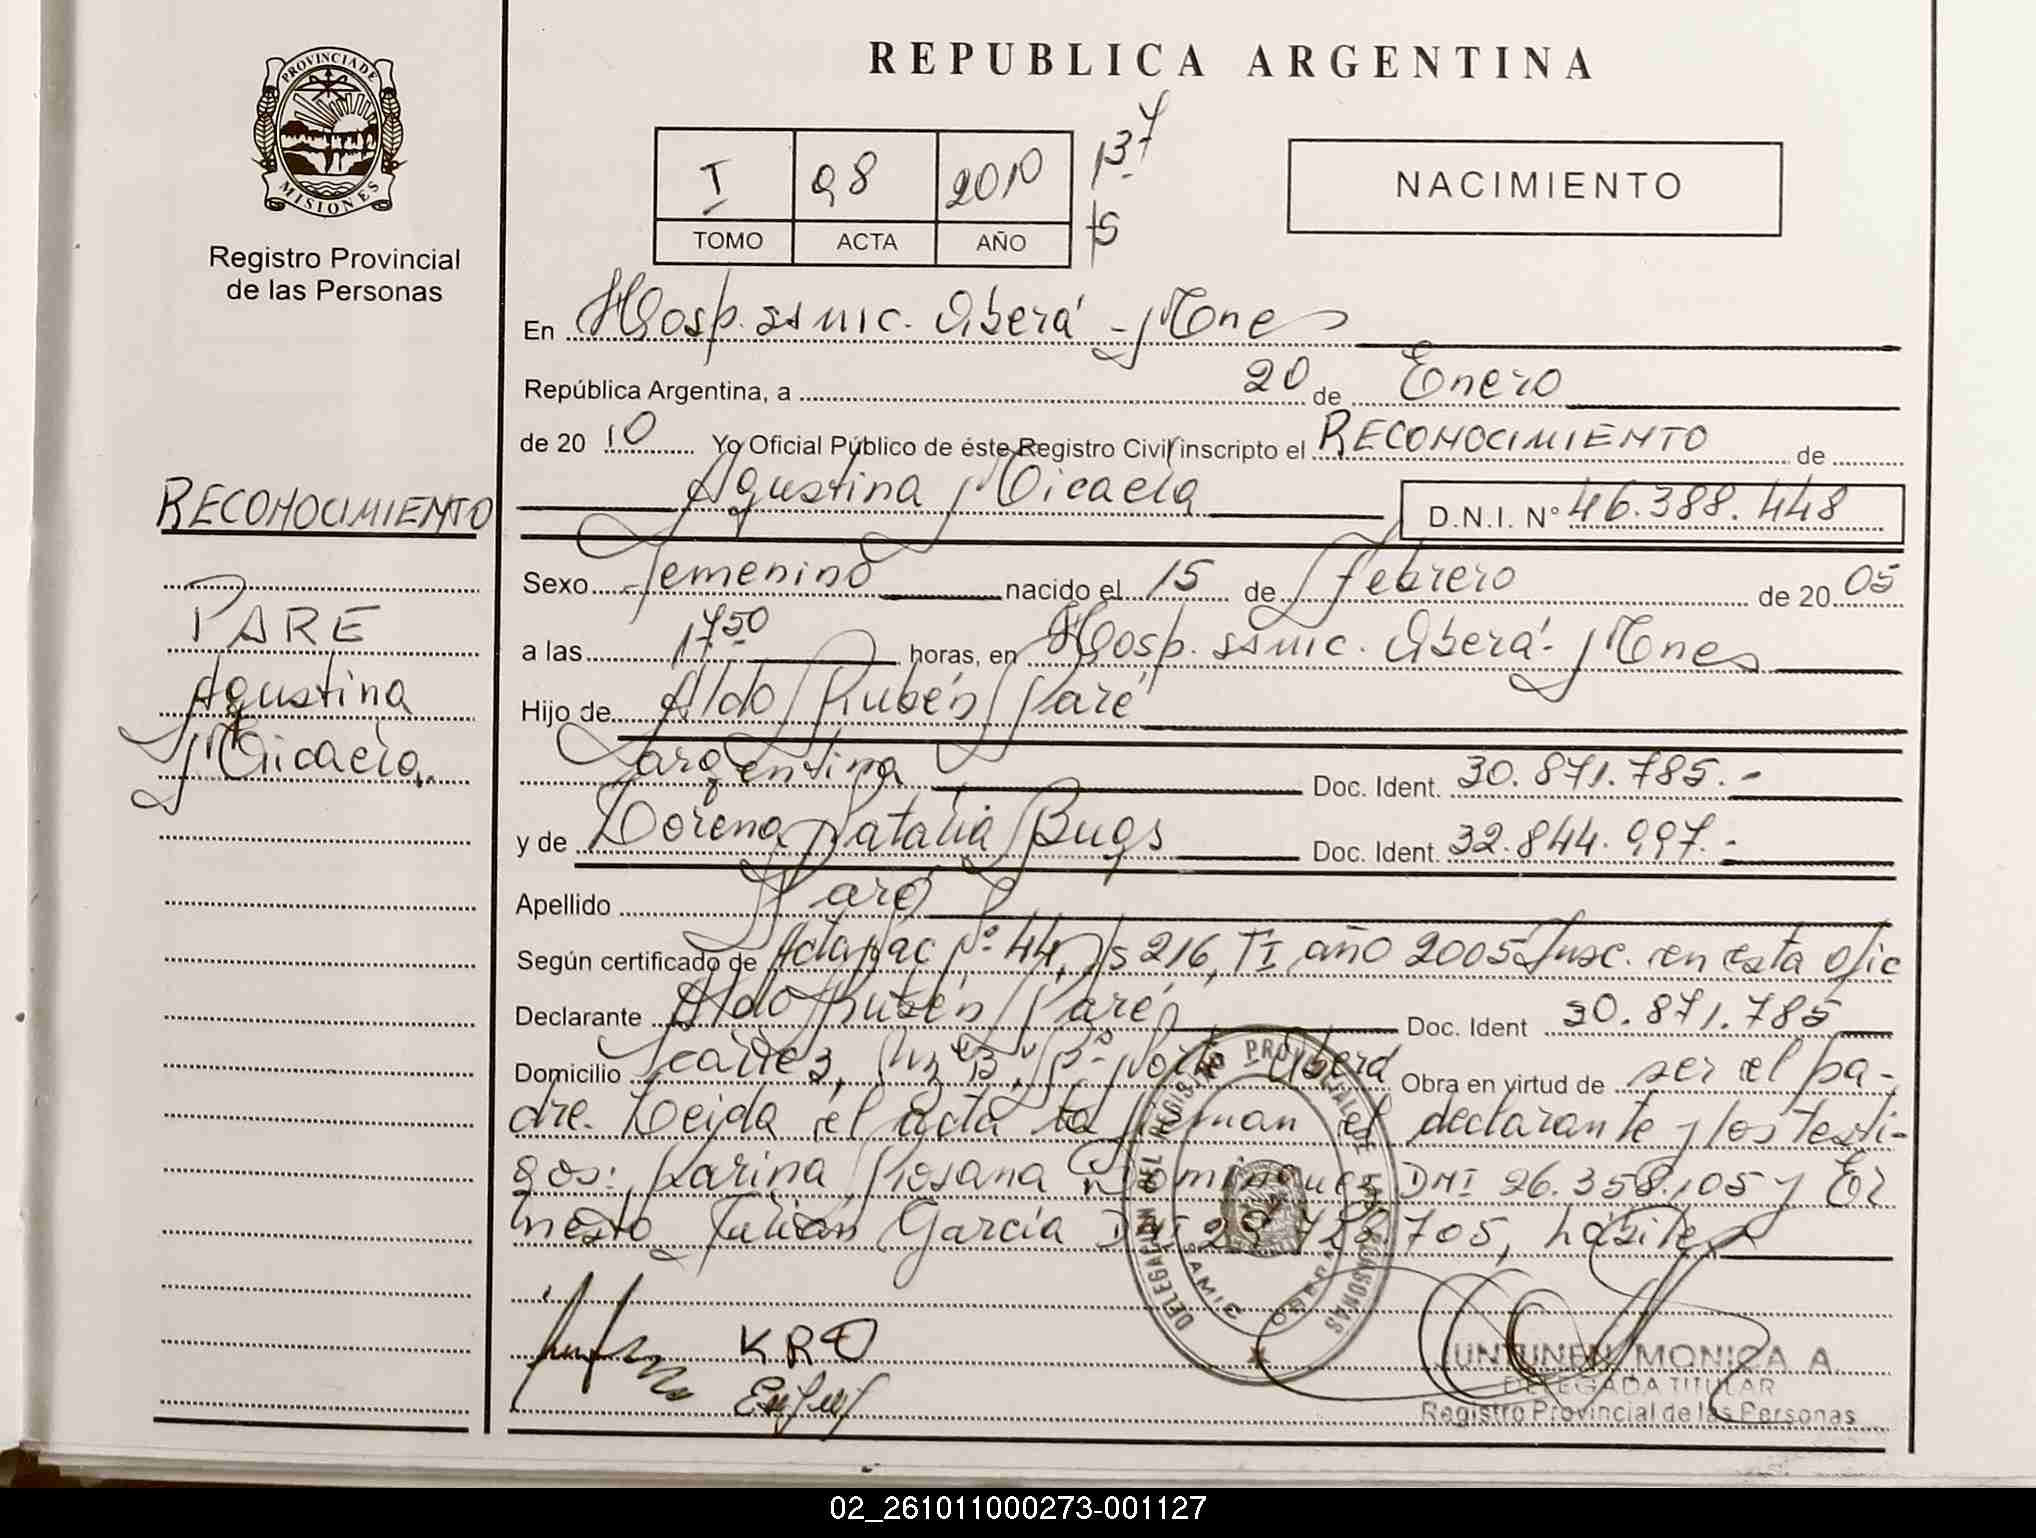 PROVINCIA DE
MISIONES
Registro Provincial
de las Personas
REPUBLICA ARGENTINA
I 98 2010
TOMO ACTA AÑO
137
fs
NACIMIENTO
En Hosp. ssmic. Oberá - Mnes
República Argentina, a 20 de Enero
de 20 10 Yo Oficial Público de éste Registro Civil inscripto el RECONOCIMIENTO de
Agustina Micaela D.N.I. N° 46.388.448
RECONOCIMIENTO
PARE
Agustina
Micaela.
Sexo femenino nacido el 15 de febrero de 20 05
a las 17.50 horas, en Hosp. ssmic. Oberá - Mnes
Hijo de Aldo Rubén Paré
argentina Doc. Ident. 30.871.785.-
y de Lorena Natalia Bugs Doc. Ident. 32.844.997.-
Apellido Paré
Según certificado de Acta nac Nº 44, fs 216, TI año 2005 Insc. en esta ofic
Declarante Aldo Rubén Paré Doc. Ident 30.871.785
Domicilio calle 3, Mz "B", Bº Norte Oberá Obra en virtud de ser el pa-
dre. Leída el acta la firman el declarante y los testi-
gos: Karina Rosana Domínguez DNI 26.358.105 y Er
nesto Julián García DNI 728.705, hábiles
KRD
DELEGACION DEL REGISTRO PROVINCIAL DE LAS PERSONAS
SAMIC OBERA
JUNTUNEN MONICA A.
DELEGADA TITULAR
Registro Provincial de las Personas
02_261011000273-001127